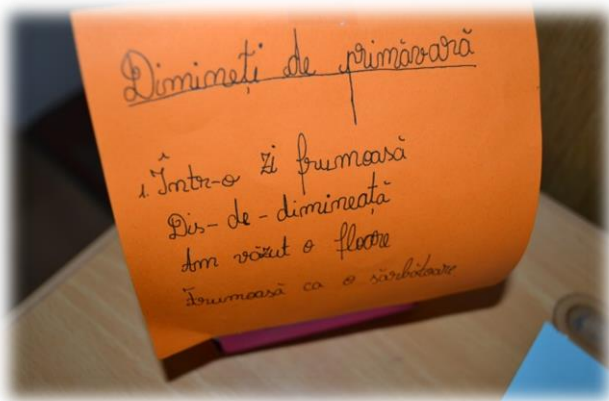 Dimineți de primăvară
1. Într-o zi frumoasă
Dis-de-dimineață
Am văzut o floare
Frumoasă ca o sărbătoare